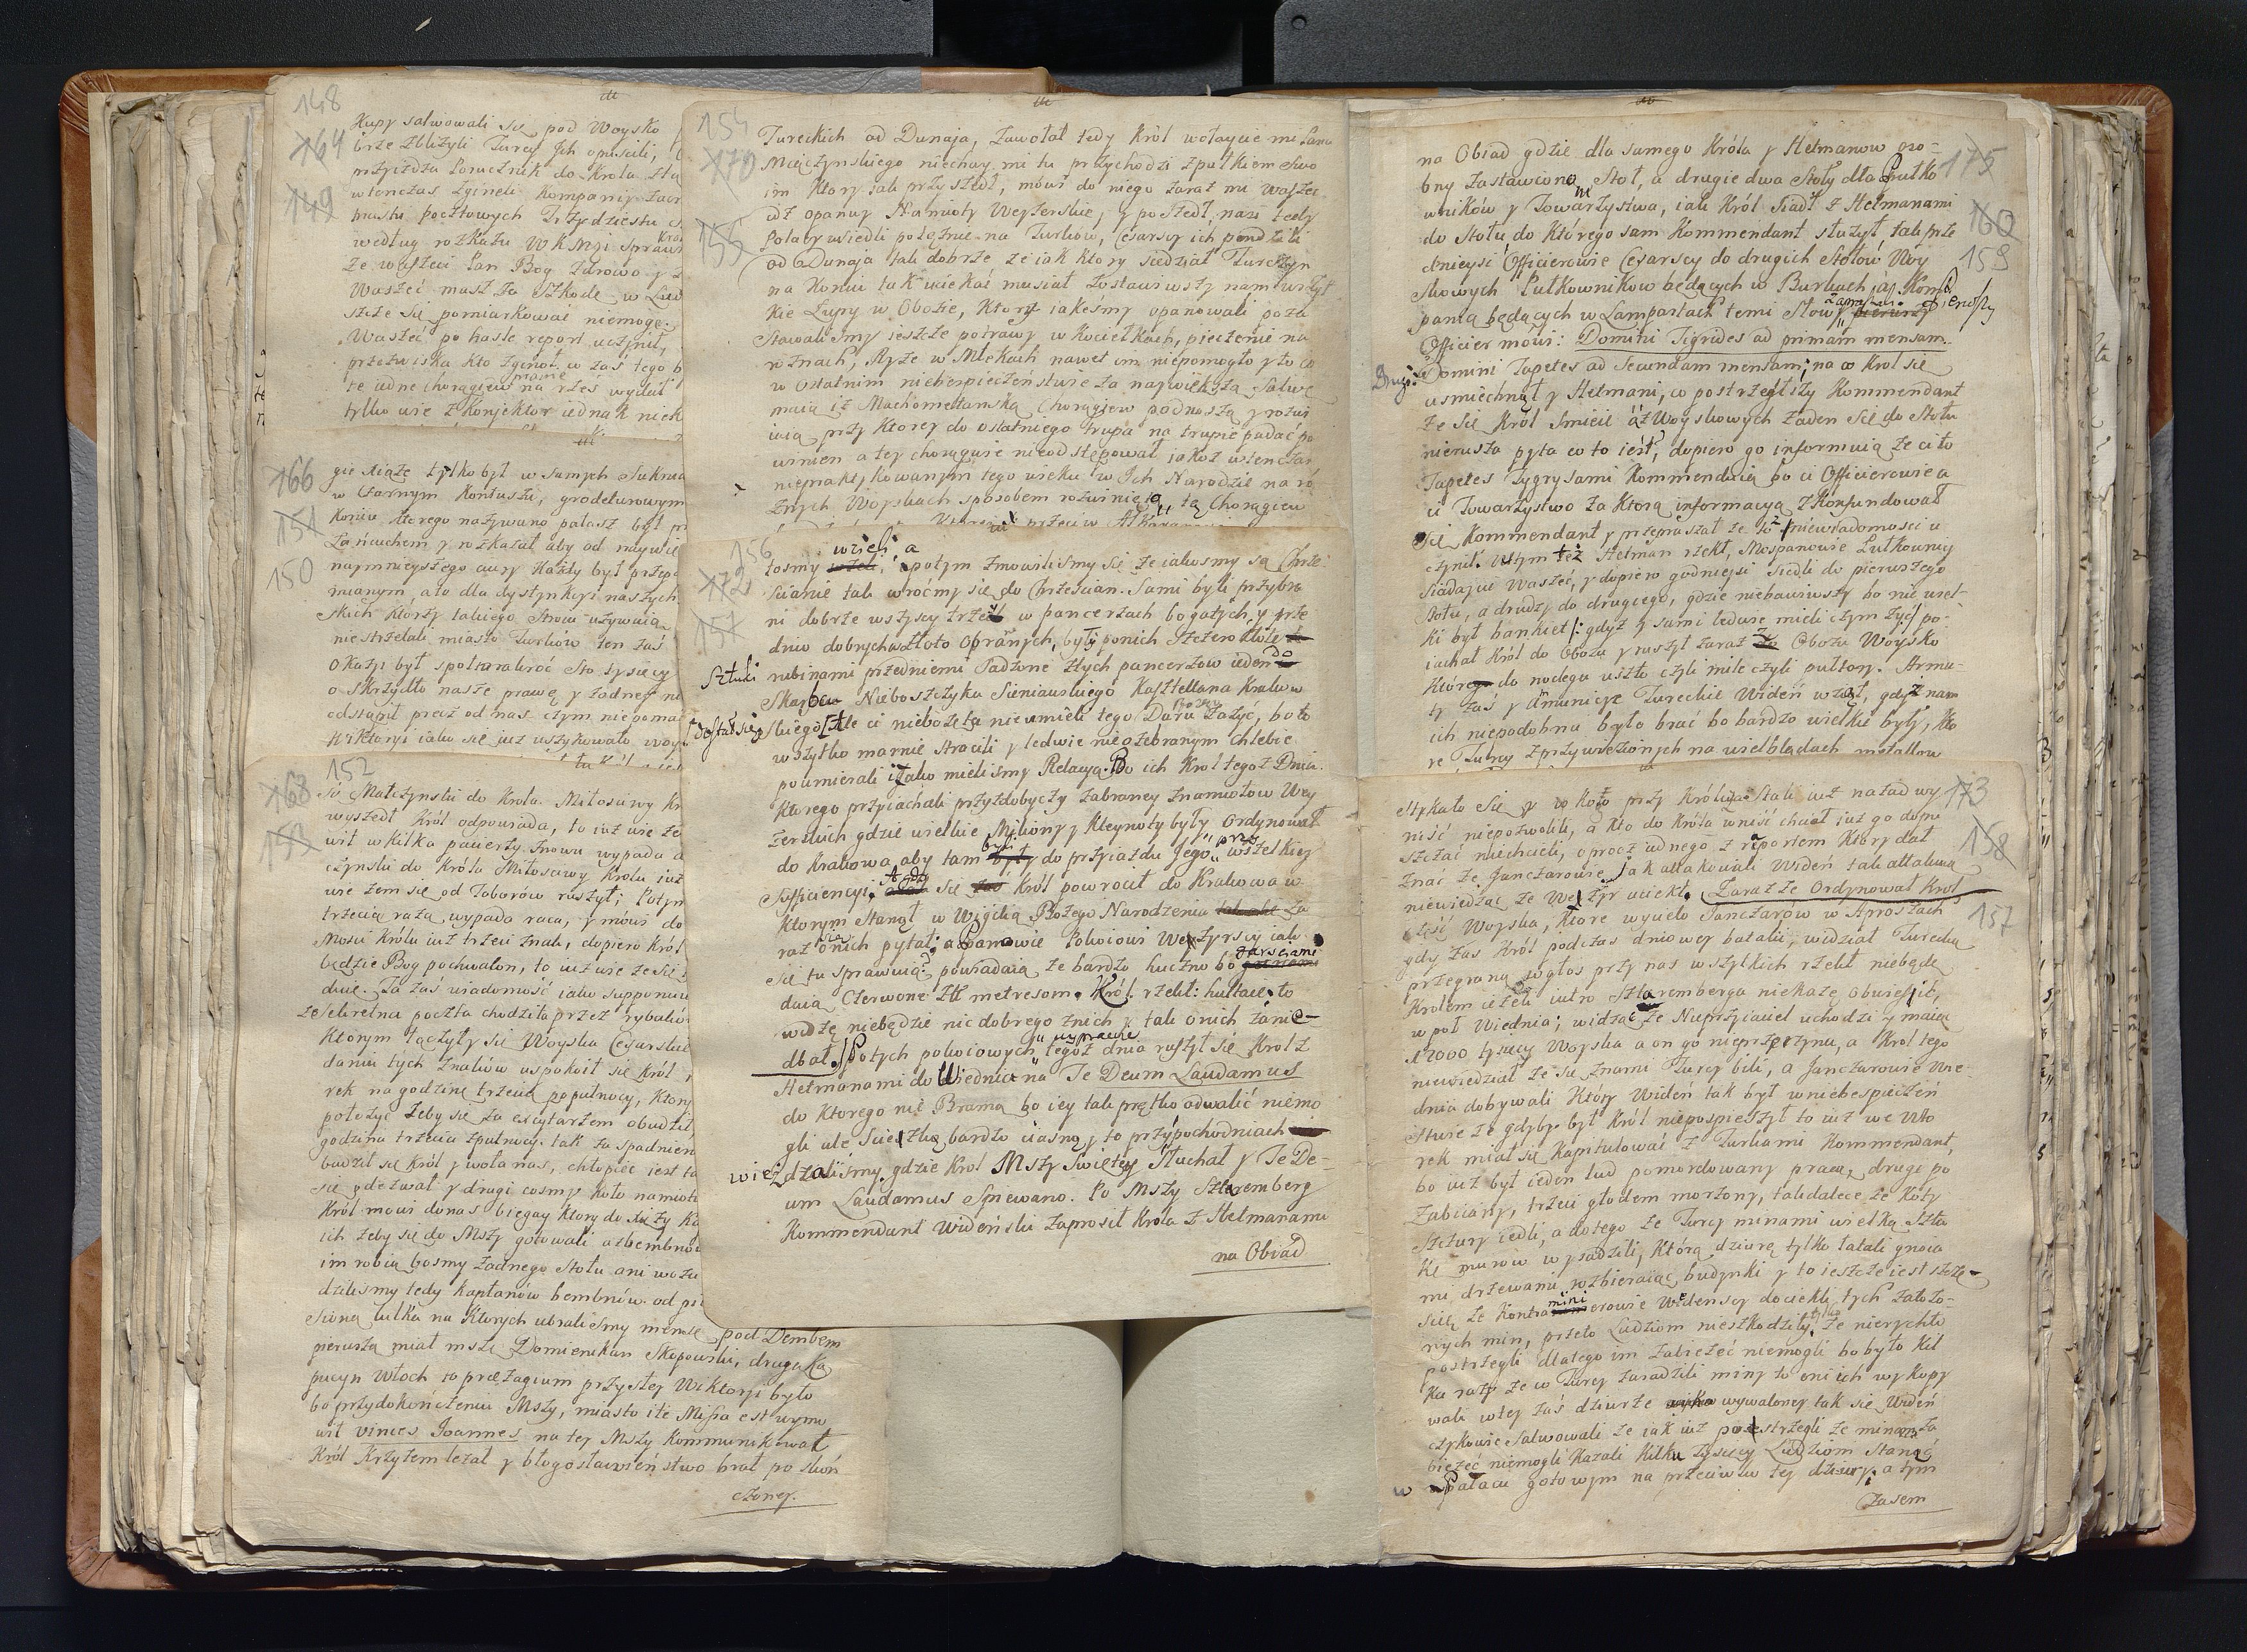 148
164
149
Kupy salwowali się pod Woysko
brze zbliżyli Turcy Ich opuścili,
przyieżdża Porucznik do Krola
wtenczas zgineli Kompanij
pocztowych Trzydziestu
według rozkazu WKMsi
że Waszeci Pan Bog zdrowo y
Waszeć masz za szkodę w Lud
się pomiarkować niemogę.
Waszeć po haśle report uczynił,
przezwiska kto zginoł. w zaś tego
chorągiew na
tylko wie z Konjektor iednak niek
166
151
150
gie xiąże tylko był w samych Sukniach
w Czarnym Kontuszu, grodeturowym
Koniu którego nazywano pałasz był
Łańcuchem y rozkazał aby od naywię
naymnieyszego aury każdy był
mianym, ato dla dystynkcyi naszych
skich którzy takiego Stroiu używaią
niestrzelali miasto Turków ten zaś
Okazyi był społtoralwroć Sto tysięcy
o Skrzydło nasze prawę y żadney
odstąpił precz od nas czym niepomał
Wiktoryi iako się iuż uszykowało woy
168
152
153
Matczynski do Krola. Miłosciwy Kr
wyszedł Król odpowiada, to iuż wie że
wił w kilka pacierzy. Znowu wypada
czynski do Króla Miłosciwy Krolu iuż
wie żem się od Taborów ruszył; Potym
trzecia raza wypada raca, y mówi do
Mości Królu iuż trzeci znak, dopiero król
będzie Bog pochwalon, to iuż wie że się
dnie. Ta zaś wiadomość iako supponuię
że Sekretna poczta chodziła przez rybaków
Którym łączyły się Woyska Cesarskie
daniu tych znaków uspokoił się król
rek na godzinę trzecią popułnocy, który
położyć żeby się za excytarzem obudził,
godzina trzecia zpułnocy. tak za spadnien
budził się Król y woła nas, chłopiec iest ta
się odezwał y drugi cosmy koło namiotu
Król mówi donas biegay który do Xięży
ich żeby się do Mszy gotowali
im robią bosmy żadnego stołu ani wozu
dzilismy tedy Kapłanów bembnów. od
kilka na Których ubraliśmy mensę pod Dembem
pierwszą miał mszę Domienikan Skopowski, drugą Ka
pucyn Włoch to prezagium przyszłey Wiktoryi było
bo przydokończeniu Mszy, miasto ite Missa est wymo
wił vinces Joannes na tey Mszy Kommunikował
Król Krzyżem leżał y błogosławieństwo brał po skoń
czoney.
154
170
155
Tureckich od Dunaja, Zawołał tedy Król wołaycie mi Pana
Miączynskiego niechay mi tu przychodzi zpułkiem Swo
im Ktory tak przyszedł, mówi do niego zaraz mi Waszeć
idź opanuy Namioty Wezyrskie, y poszedł, nasi tedy
Polacy wsiedli potężnie na Turkow, Cesarscy ich pendzili
od Dunaja tak dobrze że iak ktory siedział Turczyn
na koniu tak uciekać musiał zostawiwszy nam wszyt
kie Łupy w Obozie, Ktory iakeśmy opanowali poza
stawaliśmy ieszcze potrawy w Kociełkach, pieczenie na
rożnach, Ryże w Mlekach nawet im niepomogło y to co
w ostatnim niebespieczeństwie za naywiększą Salwę
maią iż Machometanską Chorągiew podnoszą y rozwi
iaią przy ktorey do ostatniego trupa na trupie padać po
winien a tey chorągwie nieodstępować iakoż wtenczas
niepraktykowanym tego wieku w Ich Narodzie na ró
żnych Woyskach sposobem rozwinięto tą Chorągiew
156
172
157
tosmy wzieli, a potym zmowiliśmy się że iakosmy są Chrze
ścianie tak wroćmy się do Chrześcian. Sami byli przybra
ni dobrze wszyscy trzey w pancerzach bogatych, y prze
dnio dobrych złoto opranych, były ponich szczerozłote
Sztuki rubinami przedniemi sadzone ztych pancerzow ieden do
Skarbcu Nieboszczyka Sieniawskiego Kasztellana Krakow
dostał się skiego, ale ci niebożęta nieumieli tego Daru Boskiego zażyć, bo to
wszytko marnie stracili y ledwie nieożebranym chlebie
poumierali iżako mieliśmy Relacyą. Bo ich Krol tegoż Dnia
Ktorego przyiachali przyzdobyczy zabraney znamiotow Wey
zerskich gdzie wielkie Miliony y Kleynoty były Ordynował
do Krakowa, aby tam byli do przyiazdu Jego przy wszelkiey
Sufficiencyi. A gdy się zaś Król powrócił do Krakowa w
ktorym Stanął w Wigilią Bożego Narodzenia za
raz się o nich pytał; a Panowie Pokoiowi Wezyrscy iak
się tu sprawuią? powiadaią że bardzo huczno bo garsciami
daią Czerwone Złł metresom. Król. rzekł: hultaie, to
widzę niebędzie nic dobrego znich y tak onich zanie-
dbał. Potych pokoiowych wyprawie tegoż dnia ruszył się Krol z
Hetmanami do Wiednia na Te Deum Laudamus
do ktorego nie Bramą bo iey tak prętko odwalić niemo
gli ale Scieszką bardzo ciasną y to przypochodniach
wież dzaliśmy. gdzie Krol Mszy Swiętey Słuchał y Te De-
um Laudamus Spiewano. Po Mszy Sztaremberg
Kommendant Wideński zaprosił Krola z Hetmanami
na Obiad
175
160
159
na Obiad gdzie dla samego Króla y Hetmanow oso-
bny zastawiono Stoł, a drugie dwa Stoły dla Pułko
wników y Towarzystwa, iak Król Siadł z Hetmanami
do Stołu, do którego sam Kommendant służył tak prze
dnieysi Officierowie Cesarscy do drugich Stołów Woy
skowych Pułkownikow będących w Burkach, iák Kom
panią będących w Lampartach temi Słowy zapraszaiąc pierwszy
Officier mówi: Domini Tigrides ad primam mensam.
Drugi: Domini Tapetes ad Secundam mensam; na co Krol się
usmiechnął y Hetmani, co postrzegłszy Kommendant
że się Król śmieie aż Woyskowych żaden się do Stołu
nierusza pyta co to iest, dopiero go informuią że ci to
Tapetes Tygrysami Kommenduią bo ci Officierowie a
ci Towarzystwo za którą informacyą zkonfundował
się Kommendant y przepraszał że to z niewiadomości u
czynił. Wtym też Hetman rzekł, Mospanowie Pułkownicy
siadaycie Waszeć, y dopiero godnieysi siedli do pierwszego
Stołu, a drudzy do drugiego, gdzie niebawiwszy bo nie wiel-
ki był bankiet /: gdyż y sami ledwie mieli czym żyć/ po-
iachał Król do Obozu y ruszył zaraz z Obozu Woysko
Które do noclegu uszło czyli mile czyli pułtory. Arma-
ty zaś y Amunicye Tureckie Wideń wzął, gdyż nam
ich niepodobna było brać bo bardzo wielkie były, kto
re Turcy zprzywiezionych na wielbłądach metallow
173
158
157
stykało się y w koło przy Królu stali iuż nazad wy
niść niepozwolili, a kto do Króla wniść chciał iuż go dopu
szczać niechcieli, oprocz iednego z raportem Który dał
znać że Janczarowie jak attakowali Wideń tak attakuią
niewiedząc że Wezyr uciekł. Zaraz że Ordynował Krol
część Woyska, które wycieło Janczarów w Aproszach
gdy zaś Krol podczas dniowey batalii, widział Turecką
przegraną wgłos przy nas wszytkich rzekł niebędę
Krolem ieżeli iutro Sztaremberga niekażę Obwiesić,
w poł Wiednia; widząc że Nieprzyiaciel uchodzi y maiąc
12000 tysięcy Woyska a on go nieprzerzyna, a Krol tego
niewiedział że się znami Turcy bili, a Janczarowie Wie
dnia dobywali Który Wideń tak był w niebespieczeń
stwie że gdyby był Krol niepospieszył to iuż we Wto
rek miał się kapitulować z Turkami Kommendant,
bo iuż był ieden lud pomordowany pracą, drugi po
zabiiany, trzeci głodem morzony, takdalece że Koty
Szczury iedli, a dotego że Turcy minami wielką Sztu
kę murow wysadzili, którą dziurę tylko łatali gnoia
mi drzewami rozbieraiąc budynki y to ieszcze iest szczę-
ście że Kontraminierowie Wideńscy dociekli tych założo-
nych min, przeto Ludziom nieszkodziły, że nierychło
postrzegli dlatego im zabieżeć niemogli bo było kil
ka razy że w Turcy zasadzili miny to oni ich wykopy
wali wtey zaś dziurze wywaloney tak się Wideń
czykowie Salwowali że iak iuż postrzegli że minom za
bieżeć niemogli kazali kilku tysięcy Ludziom stanąć
w Pałacu gotowym na przeciwko tey dziury, a tym
Czasem